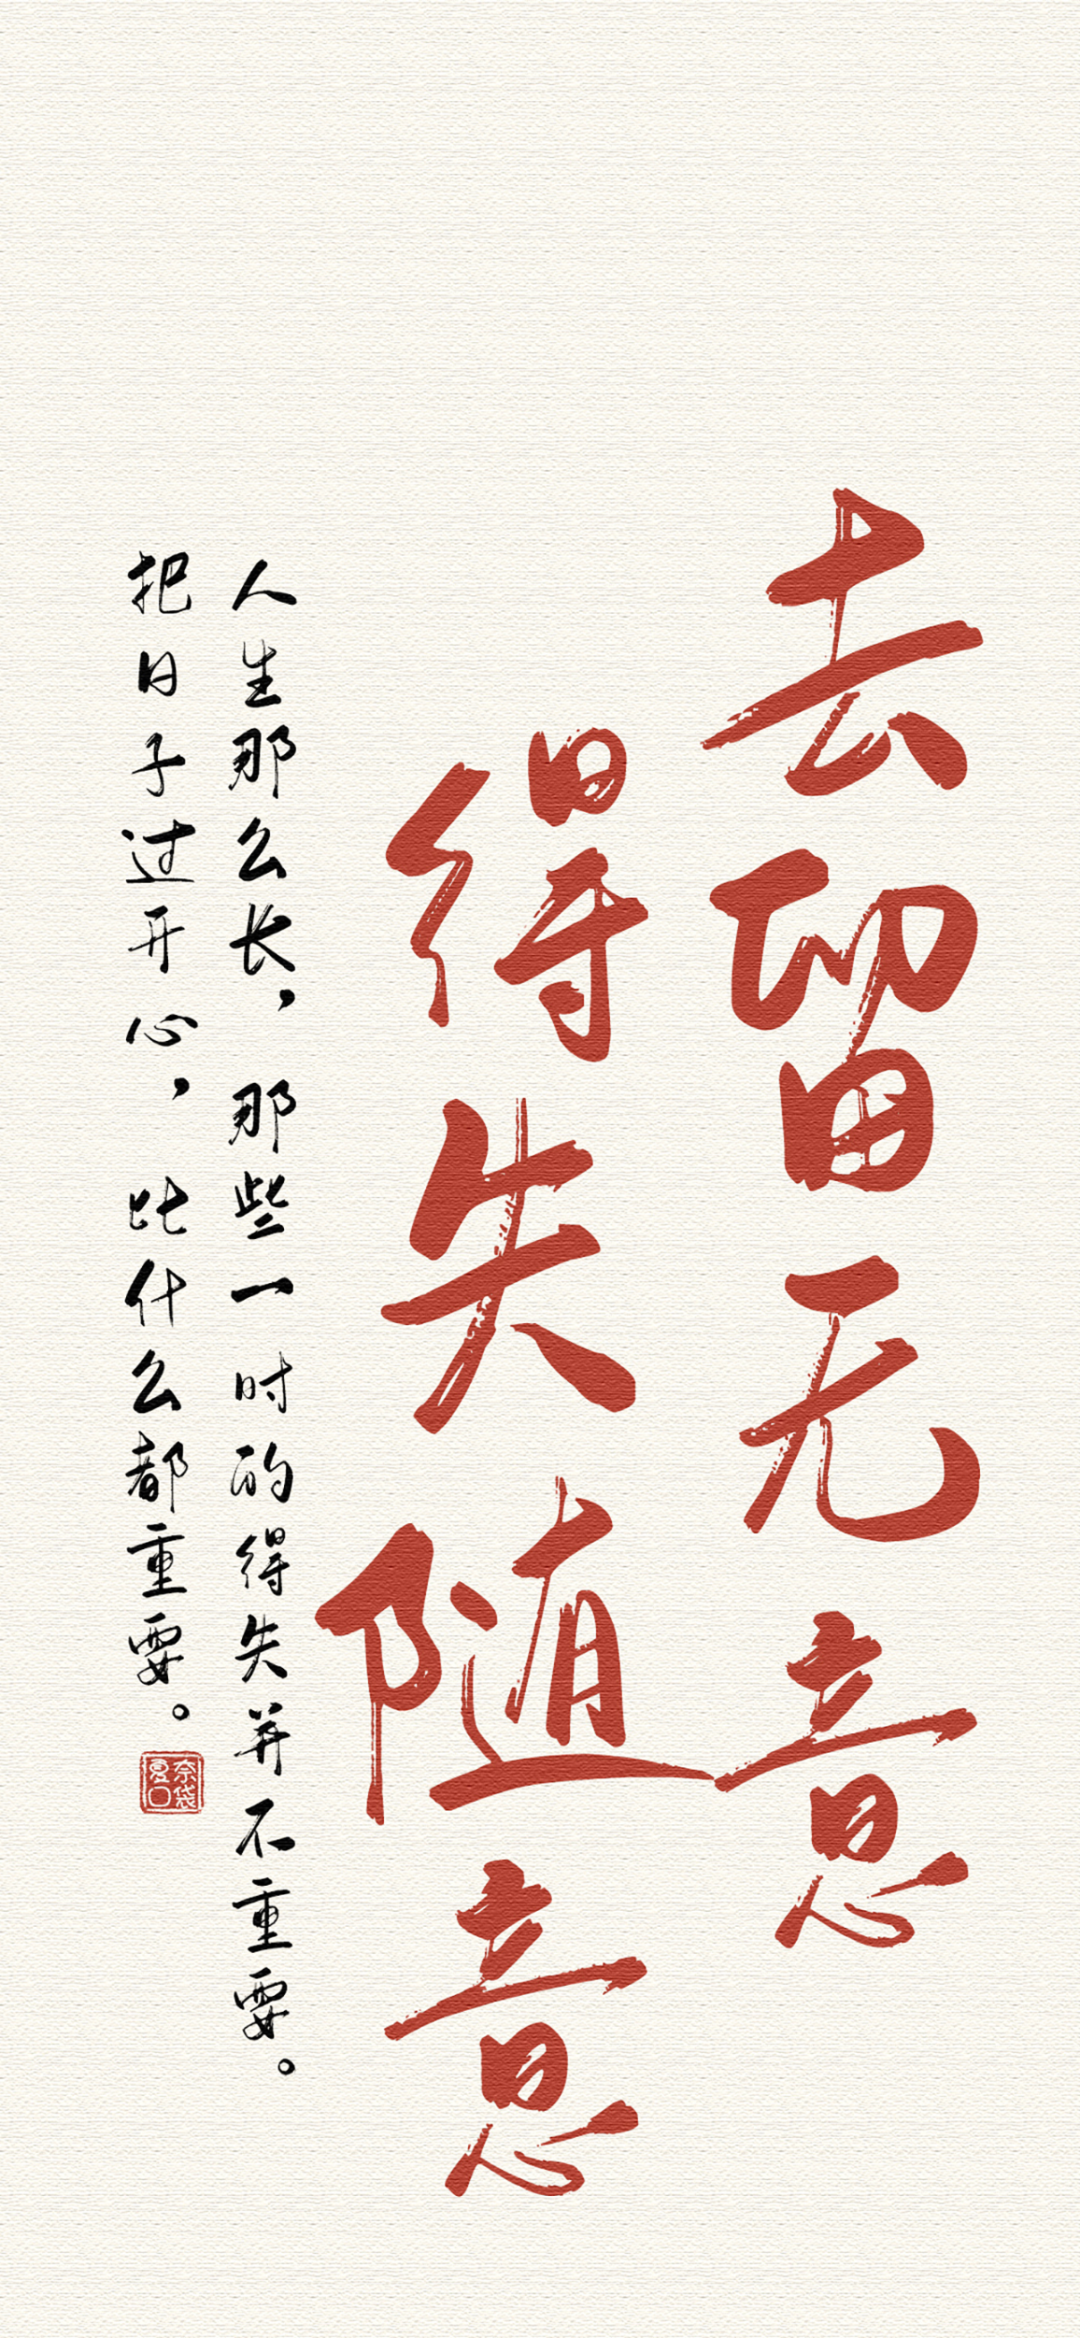 去留无意
得失随意
人生那么长，那些一时的得失并不重要。
把日子过开心，比什么都重要。